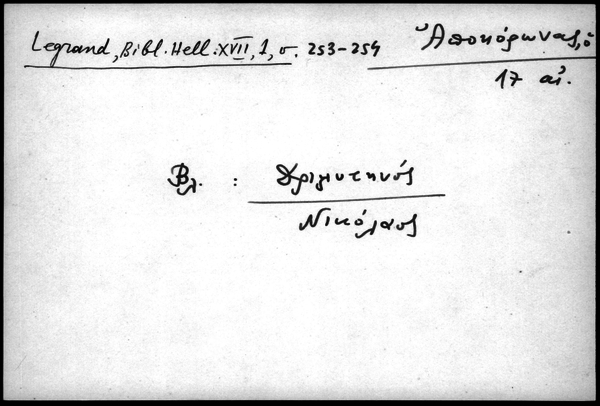 Legrand, Bibl. Hell. XVII, 1, σ. 253-254
Ἀποκόρωνας, ὁ
17 αἰ.
Βλ. : Δριμυτηνός
Νικόλαος